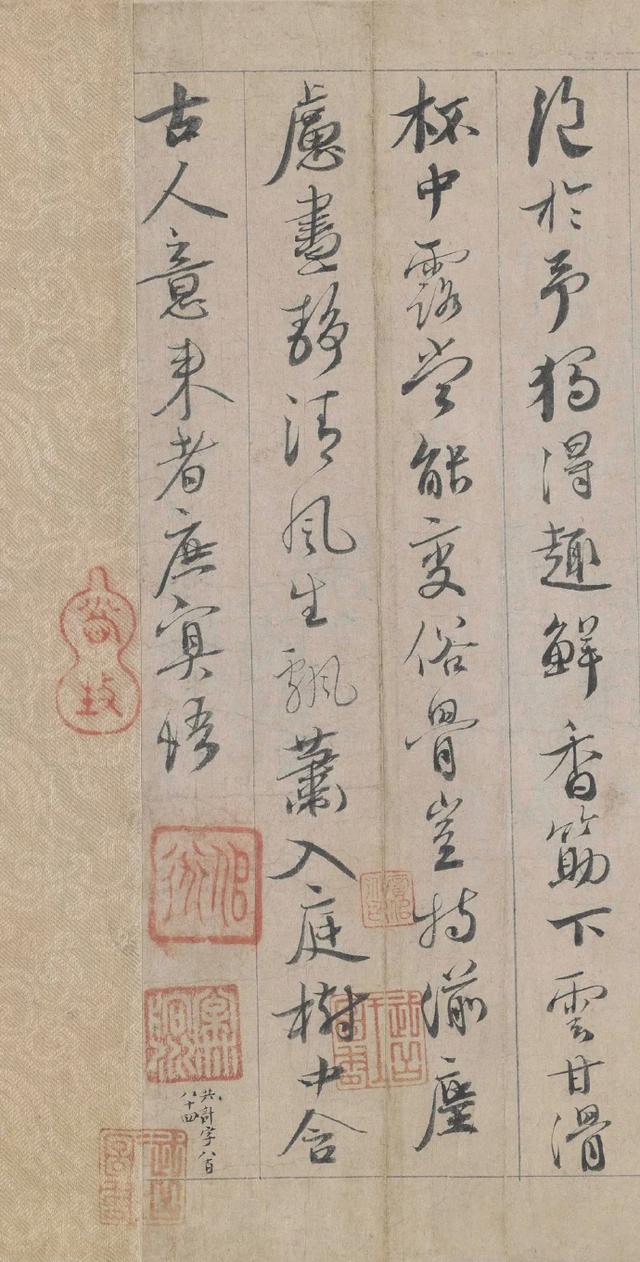 絶於予獨得趣鮮香筯下雲甘滑
杯中露當能變俗骨豈特湔塵
慮晝静清風生飄蕭入庭樹中含
古人意来者庶冥悟
共計字八百
八十四